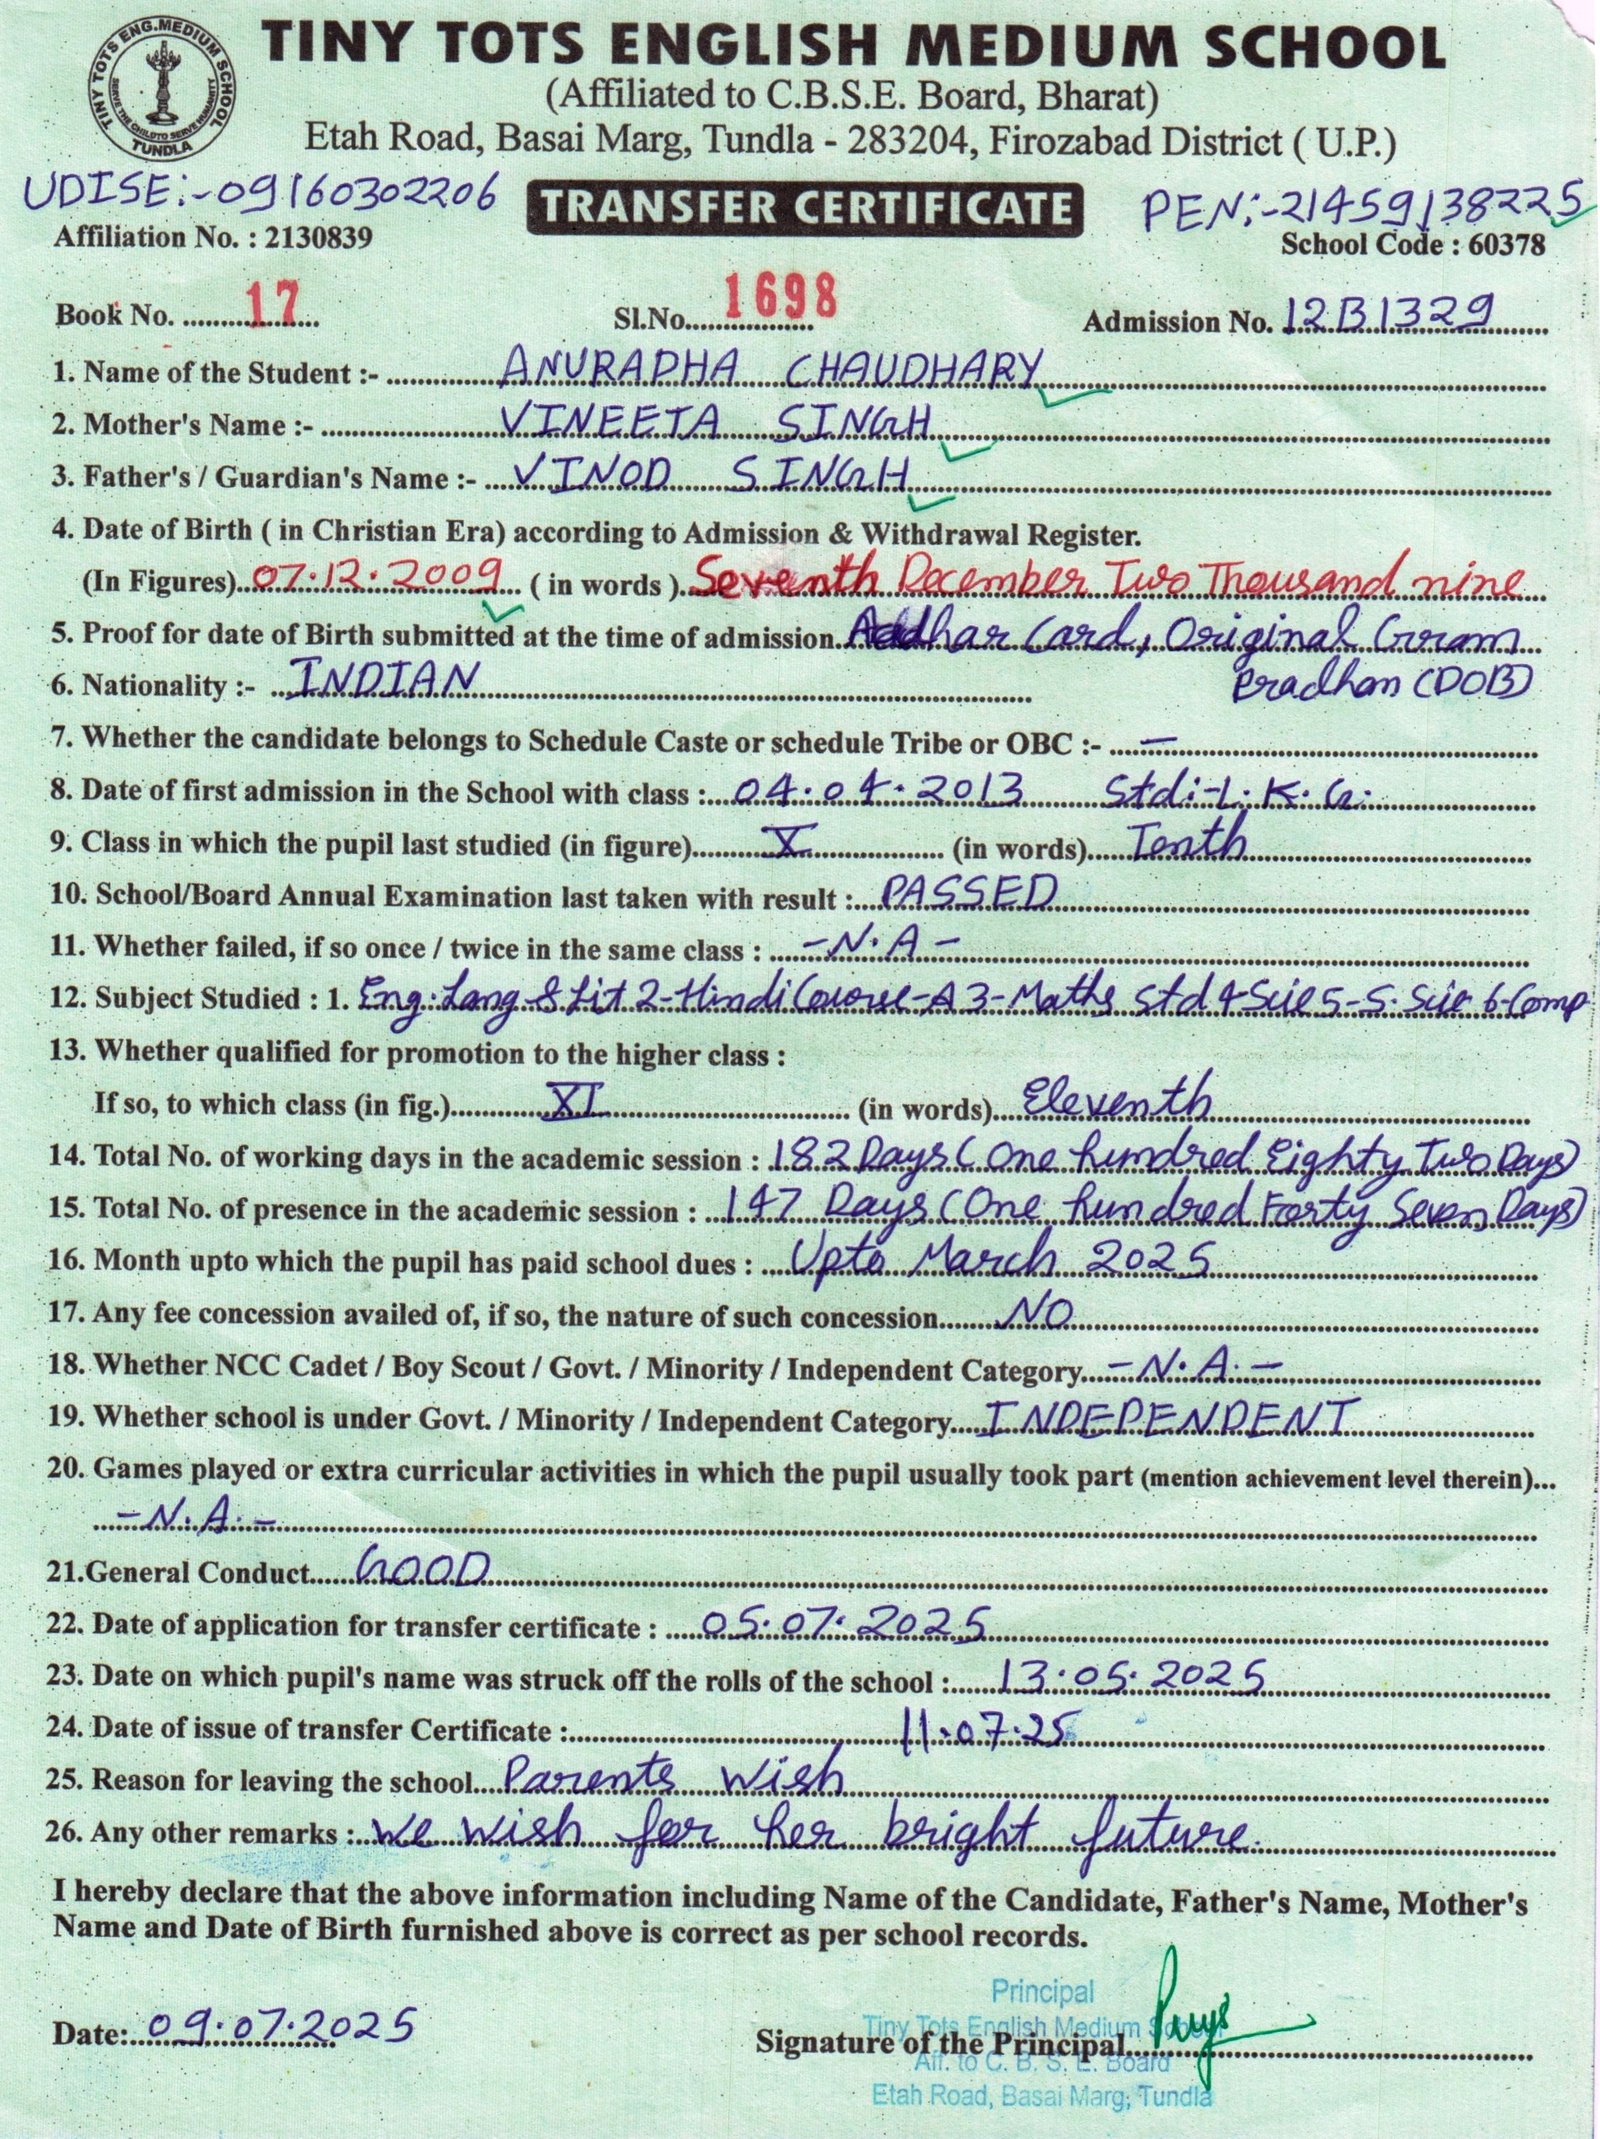 TINY TOTS ENG.MEDIUM SCHOOL
SERVE THE CHILD TO SERVE HUMANITY
TUNDLA
TINY TOTS ENGLISH MEDIUM SCHOOL
(Affiliated to C.B.S.E. Board, Bharat)
Etah Road, Basai Marg, Tundla - 283204, Firozabad District ( U.P.)
UDISE:-09160302206 TRANSFER CERTIFICATE PEN:-21459138225
Affiliation No. : 2130839 School Code : 60378
Book No. 17 Sl.No. 1698 Admission No. 12B1329
1. Name of the Student :- ANURADHA CHAUDHARY
2. Mother's Name :- VINEETA SINGH
3. Father's / Guardian's Name :- VINOD SINGH
4. Date of Birth ( in Christian Era) according to Admission & Withdrawal Register.
(In Figures) 07.12.2009 ( in words ) Seventh December Two Thousand nine
5. Proof for date of Birth submitted at the time of admission. Aadhar Card, Original Gram
6. Nationality :- INDIAN Pradhan (DOB)
7. Whether the candidate belongs to Schedule Caste or schedule Tribe or OBC :- —
8. Date of first admission in the School with class : 04.04.2013 Std:-L.K.G.
9. Class in which the pupil last studied (in figure) X (in words) Tenth
10. School/Board Annual Examination last taken with result : PASSED
11. Whether failed, if so once / twice in the same class : -N.A-
12. Subject Studied : 1. Eng.Lang & Lit 2-Hindi Course-A 3-Maths Std 4-Scie 5-S.Scie 6-Comp
13. Whether qualified for promotion to the higher class :
If so, to which class (in fig.) XI (in words) Eleventh
14. Total No. of working days in the academic session : 182 Days (One hundred Eighty Two Days)
15. Total No. of presence in the academic session : 147 Days (One hundred Forty Seven Days)
16. Month upto which the pupil has paid school dues : Upto March 2025
17. Any fee concession availed of, if so, the nature of such concession NO
18. Whether NCC Cadet / Boy Scout / Govt. / Minority / Independent Category -N.A.-
19. Whether school is under Govt. / Minority / Independent Category INDEPENDENT
20. Games played or extra curricular activities in which the pupil usually took part (mention achievement level therein)...
-N.A.-
21.General Conduct GOOD
22. Date of application for transfer certificate : 05.07.2025
23. Date on which pupil's name was struck off the rolls of the school : 13.05.2025
24. Date of issue of transfer Certificate : 11.07.25
25. Reason for leaving the school Parents Wish
26. Any other remarks : We wish for her bright future.
I hereby declare that the above information including Name of the Candidate, Father's Name, Mother's
Name and Date of Birth furnished above is correct as per school records.
Principal
Tiny Tots English Medium School
Date: 09.07.2025 Signature of the Principal
Aff. to C. B. S. E. Board
Etah Road, Basai Marg, Tundla